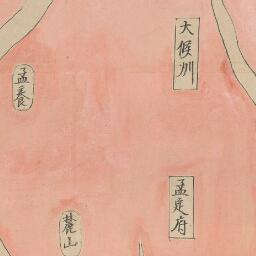 大候州
孟養
孟定府
麓山